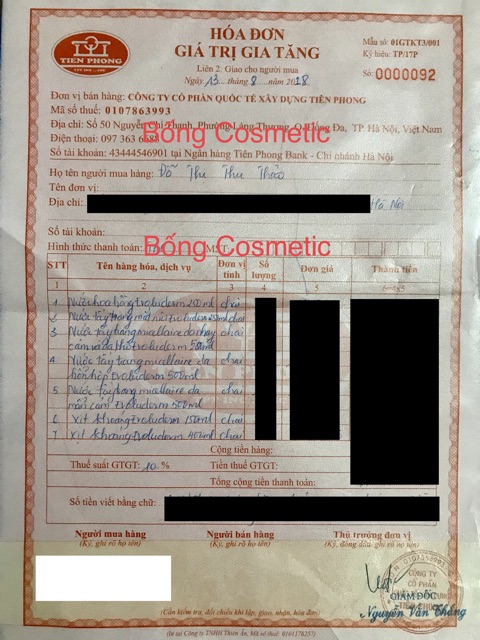 HÓA ĐƠN
GIÁ TRỊ GIA TĂNG
Liên 2: Giao cho người mua
Ngày 13 tháng 8 năm 2018
Mẫu số: 01GTKT3/001
Ký hiệu: TP/17P
Số: 0000092
TIEN PHONG
Đơn vị bán hàng: CÔNG TY CỔ PHẦN QUỐC TẾ XÂY DỰNG TIÊN PHONG
Mã số thuế: 0107863993
Địa chỉ: Số 50 Nguyễn Chí Thanh, Phường Láng Thượng, Q.Đống Đa, TP. Hà Nội, Việt Nam
Bống Cosmetic
Điện thoại: 097 363 6
Số tài khoản: 43444546901 tại Ngân hàng Tiên Phong Bank - Chi nhánh Hà Nội
Họ tên người mua hàng: Đỗ Thị Thu Thảo
Tên đơn vị:
Địa chỉ: Hà Nội
Số tài khoản:
Hình thức thanh toán: MST:
Bống Cosmetic
STT Tên hàng hóa, dịch vụ Đơn vị tính Số lượng Đơn giá Thành tiền
1 2 3 4 5 6=4x5
1 Nước hoa hồng Evoluderm 250ml chai
2 Nước tẩy trang mắt môi Evoluderm 150ml chai
3 Nước tẩy trang micellaire da nhạy chai
cảm và da khô Evoluderm 500ml
4 Nước tẩy trang micellaire da chai
hỗn hợp Evoluderm 500ml
5 Nước tẩy trang micellaire da chai
mẫn cảm Evoluderm 500ml
6 Xịt khoáng Evoluderm 150ml chai
7 Xịt khoáng Evoluderm 400ml chai
Cộng tiền hàng:
Thuế suất GTGT: 10 % Tiền thuế GTGT:
Tổng cộng tiền thanh toán:
Số tiền viết bằng chữ:
Người mua hàng Người bán hàng Thủ trưởng đơn vị
(Ký, ghi rõ họ tên) (Ký, ghi rõ họ tên) (Ký, đóng dấu, ghi rõ họ tên)
CÔNG TY
GIÁM ĐỐC
Nguyễn Văn Thắng
(Cần kiểm tra, đối chiếu khi lập, giao, nhận hóa đơn)
(In tại Công ty TNHH Thiên Ấn, Mã số thuế: 0101178257)